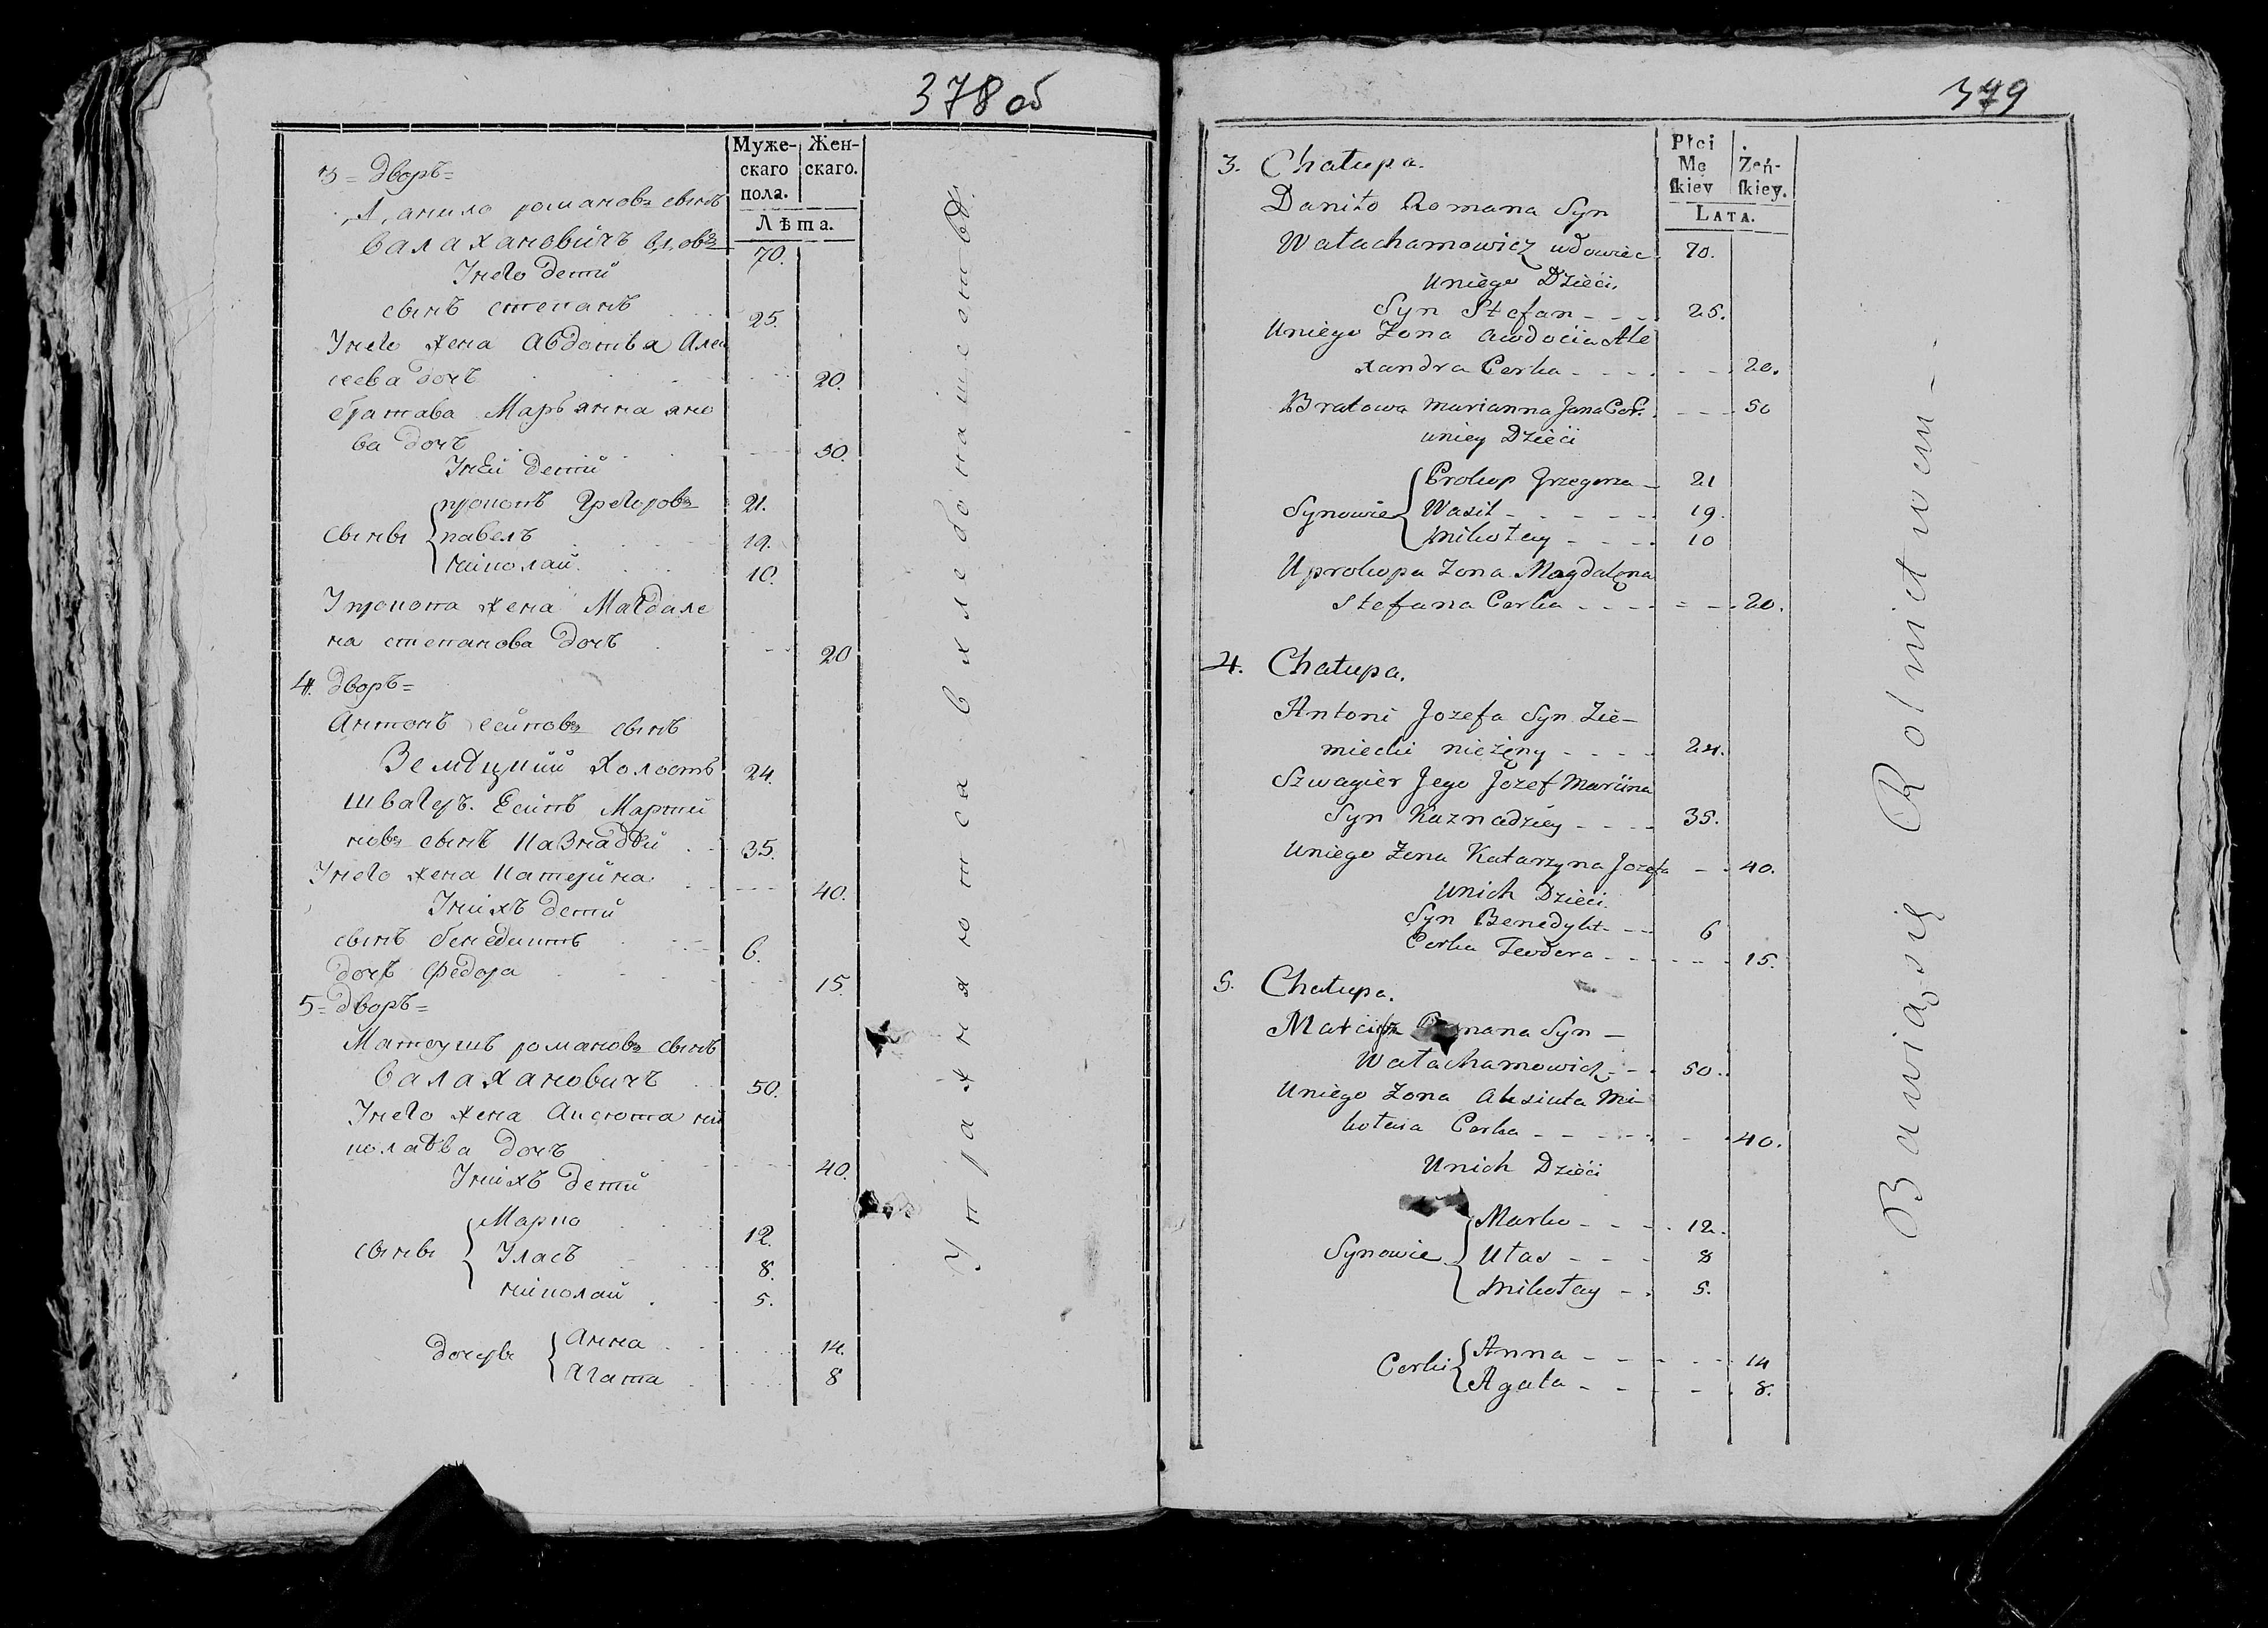 378 об
Муже-
скаго
пола.
Жен-
скаго.
Лѣта.
3 = Дворъ =
Данило романовъ сынъ
валахановичъ вдовъ 70.
Унего дети
сынъ степанъ 25.
Унего жена Авдотья Алек
сеева дочь 20.
братава Марьянна яно
ва дочь 50.
Уней дети
сыны
прокопъ Грегоровъ 21.
павелъ 19.
николай 10.
Упрокопа жена Магдале
на степанова дочь 20
4. Дворъ =
Антонъ есиповъ сынъ
Земецкий холостъ 24.
швагеръ. Есипъ Марти
новъ сынъ казнадѣй 35.
Унего жена катерина 40.
Унихъ дети
сынъ бенедиктъ 6.
дочь федора 15.
5 = Дворъ =
Матеушъ романовъ сынъ
валахановичъ 50.
Унего жена Аксюта ни
колаева дочь 40.
Унихъ дети
сыны
Марко 12.
Уласъ 8.
николай 5.
дочеры
Анна 14.
Агата 8
Упражняются в хлебопашестве.
379
Płci
Mę
ſkiey
Żeń-
ſkiey.
LATA.
3. Chałupa.
Daniło Romana Syn
Wałachamowicz wdowiec 70.
Uniego Dzieći.
Syn Stefan - - - 25.
Uniego Żona Awdocia Ale
xandra Corka - - - - 20.
Bratowa Marianna Jana Cor. - - - 50
uniey Dzieći
Synowie
Prokop Grzegorza - 21
Wasil - - - - - 19.
Mikołay - - - - 10
Uprokopa Żona Magdalęna
Stefana Corka - - - - 20.
4. Chałupa.
Antoni Jozefa Syn Zie-
miecki nieżęny - - - - 24.
Szwagier Jego Jozef Marcina
Syn Kaznadziey - - - - 35.
Uniego Żona Katarzyna Jozefa - - 40.
Unich Dzieći.
Syn Benedykt - - - 6
Corka Teodora - - - - - 15.
5. Chałupa.
Romana Syn -
Wałachamowicz - - 50.
Uniego Żona Aksiuta Mi-
kołaia Corka - - - - - 40.
Unich Dzieći
Synowie
Marko - - - - 12.
Ułas - - - 8
Mikołay - - 5.
Corki
Anna - - - - - 14
Agata - - - - 8.
Bawią się Rolnictwem -